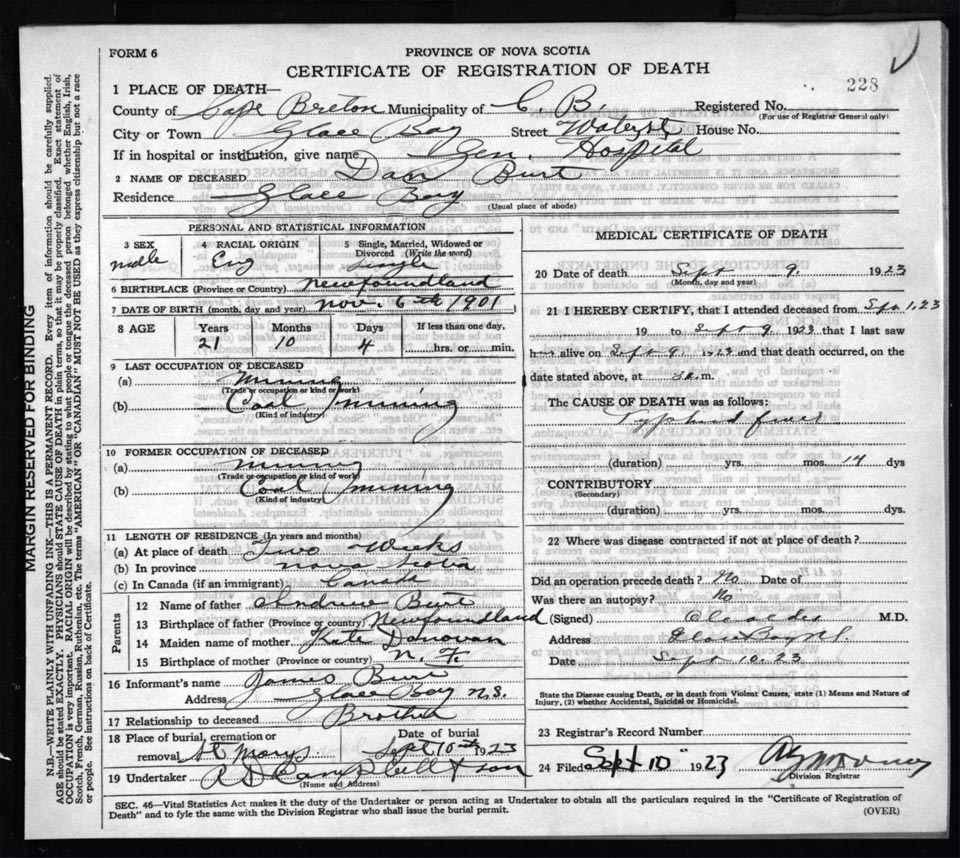 FORM 6
PROVINCE OF NOVA SCOTIA
CERTIFICATE OF REGISTRATION OF DEATH
228
1 PLACE OF DEATH—
County of Cape Breton Municipality of C. B. Registered No.
(For use of Registrar General only)
City or Town Glace Bay Street Water St House No.
If in hospital or institution, give name Gen. Hospital
2 NAME OF DECEASED Dan Burt
Residence Glace Bay
(Usual place of abode)
PERSONAL AND STATISTICAL INFORMATION
3 SEX male
4 RACIAL ORIGIN Eng
5 Single, Married, Widowed or Divorced (Write the word) single
6 BIRTHPLACE (Province or Country) Newfoundland
7 DATE OF BIRTH (month, day and year) Nov. 6th 1901
8 AGE Years Months Days If less than one day,
21 10 4 hrs. or min.
9 LAST OCCUPATION OF DECEASED
(a) Mining
(Trade or occupation or kind of work)
(b) Coal mining
(Kind of industry)
10 FORMER OCCUPATION OF DECEASED
(a) mining
(Trade or occupation or kind of work)
(b) Coal mining
(Kind of industry)
11 LENGTH OF RESIDENCE (In years and months)
(a) At place of death Two Weeks
(b) In province Nova Scotia
(c) In Canada (if an immigrant) Canada
Parents
12 Name of father Andrew Burt
13 Birthplace of father (Province or country) Newfoundland
14 Maiden name of mother Kate Donovan
15 Birthplace of mother (Province or country) N. F.
16 Informant's name James Burt
Address Glace Bay N.S.
17 Relationship to deceased Brother
18 Place of burial, cremation or removal St Marys
Date of burial Sept 10th 1923
19 Undertaker Campbell & son
(Name and Address)
MEDICAL CERTIFICATE OF DEATH
20 Date of death Sept 9. 1923
(Month, day and year)
21 I HEREBY CERTIFY, that I attended deceased from Sep 1, 23
19 to Sept 9 1923 that I last saw
h alive on Sept 9 1923 and that death occurred, on the
date stated above, at m.
The CAUSE OF DEATH was as follows:
Typhoid fever
(duration) yrs. mos. 14 dys
CONTRIBUTORY
(Secondary)
(duration) yrs. mos. dys.
22 Where was disease contracted if not at place of death?
Did an operation precede death? No Date of
Was there an autopsy? No
(Signed) M.D.
Address Glace Bay NS
Date Sept 10. 23
State the Disease causing Death, or in death from Violent Causes, state (1) Means and Nature of
Injury, (2) whether Accidental, Suicidal or Homicidal.
23 Registrar's Record Number
24 Filed Sept 10 1923
Division Registrar
SEC. 46—Vital Statistics Act makes it the duty of the Undertaker or person acting as Undertaker to obtain all the particulars required in the "Certificate of Registration of
Death" and to fyle the same with the Division Registrar who shall issue the burial permit. (OVER)
MARGIN RESERVED FOR BINDING
N.B.—WRITE PLAINLY WITH UNFADING INK—THIS IS A PERMANENT RECORD. Every item of information should be carefully supplied.
AGE should be stated EXACTLY. PHYSICIANS should STATE CAUSE OF DEATH in plain terms, so that it may be properly classified. Exact statement of
OCCUPATION is very important. RACIAL ORIGIN will be described by stating to what people or tongue the deceased person belonged, whether English, Irish,
Scotch, French, German, Russian, Ruthenian, etc. The terms "AMERICAN" OR "CANADIAN" MUST NOT BE USED as they express citizenship but not a race
or people. See instructions on back of Certificate.